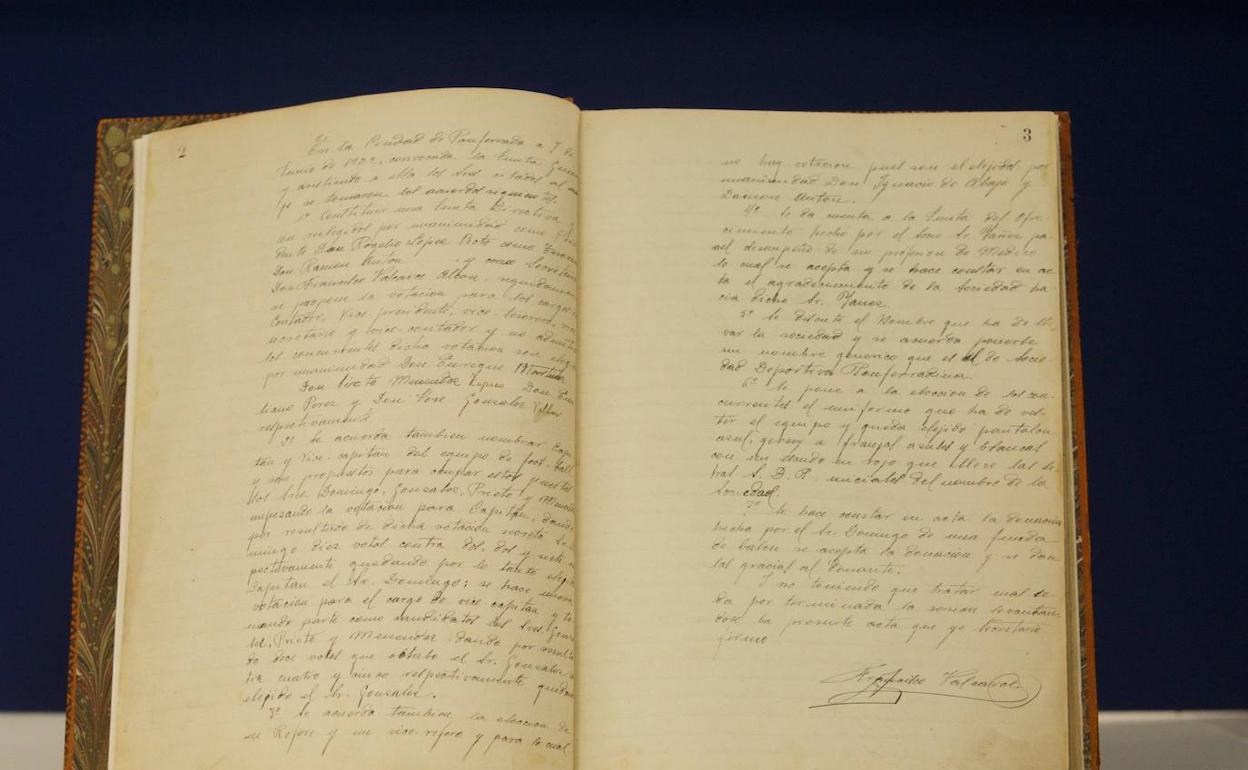 2
En la Ciudad de Ponferrada a 7 de
Junio de 1922, convocada la Junta Gene
y asistiendo a ella los Sres. citados al
se tomaron los acuerdos siguientes.
1º Constituir una Junta Directiva
son elegidos por unanimidad como Presi
dente Don Rogelio López Boto como Tesorero
Don Ramon Anton y como Secretario
Don Francisco Valcarce Albon, seguidamente
se propone la votacion para los cargos
Contador, Vice-presidente, vice-tesorero, vice
secretario y vice-contador y no admiten
los concurrentes dicha votacion son elegi
por unanimidad Don Enrique Martinez
Don Sixto Menendez Don
liano Perez y Don Jose Gonzalez
respectivamente.
2º Se acuerda tambien nombrar Capi
tan y Vice-capitan del equipo de foot-ball
y son propuestos para ocupar estos puestos
los Sres. Domingo, Gonzalez, Prieto y Menen
empezando la votacion para Capitan, dando
por resultado de dicha votacion secreta Sr.
mingo diez votos contra dos, dos y siete
pectivamente quedando por lo tanto elegi
Capitan el Sr. Domingo; se hace nueva
votacion para el cargo de vice-capitan y to
mando parte como candidatos los Sres. Gonza
lez, Prieto y Menendez dando por resulta
do doce votos que obtubo el Sr. Gonzalez
tra cuatro y cinco respectivamente quedan
elegido el Sr. Gonzalez.
3º Se acuerda tambien la eleccion de
un Refere y un vice-refere y para lo cual
3
no hay votacion pues son elejidos por
unanimidad Don Ignacio de Abajo y
Damon Anton.
4º Se da cuenta a la Junta del Ofre-
cimiento hecho por el Socio Sr. Yañez pa-
el desempeño de su profesion de Medico
lo cual se acepta y se hace constar en ac-
ta el agradecimiento de la Sociedad ha-
cia dicho Sr. Yañez.
5º Se discute el Nombre que ha de lle-
var la sociedad y se acuerda ponerle
un nombre generico que es el de Socie-
dad Deportiva Ponferradina.
6º Se pone a la eleccion de los con-
currentes el uniforme que ha de ves-
tir el equipo y queda elejido pantalon
azul, gersey a franjas azules y blancas
con un escudo en rojo que lleve las le-
tras S. D. P. iniciales del nombre de la
Sociedad.
7º Se hace constar en acta la donacion
hecha por el Sr. Domingo de una funda
de balon se acepta la donacion y se dan
las gracias al donante.
Y no teniendo que tratar mas se
da por terminada la sesion levantan-
dose la presente acta que yo Secretario
firmo
Francisco Valcarce